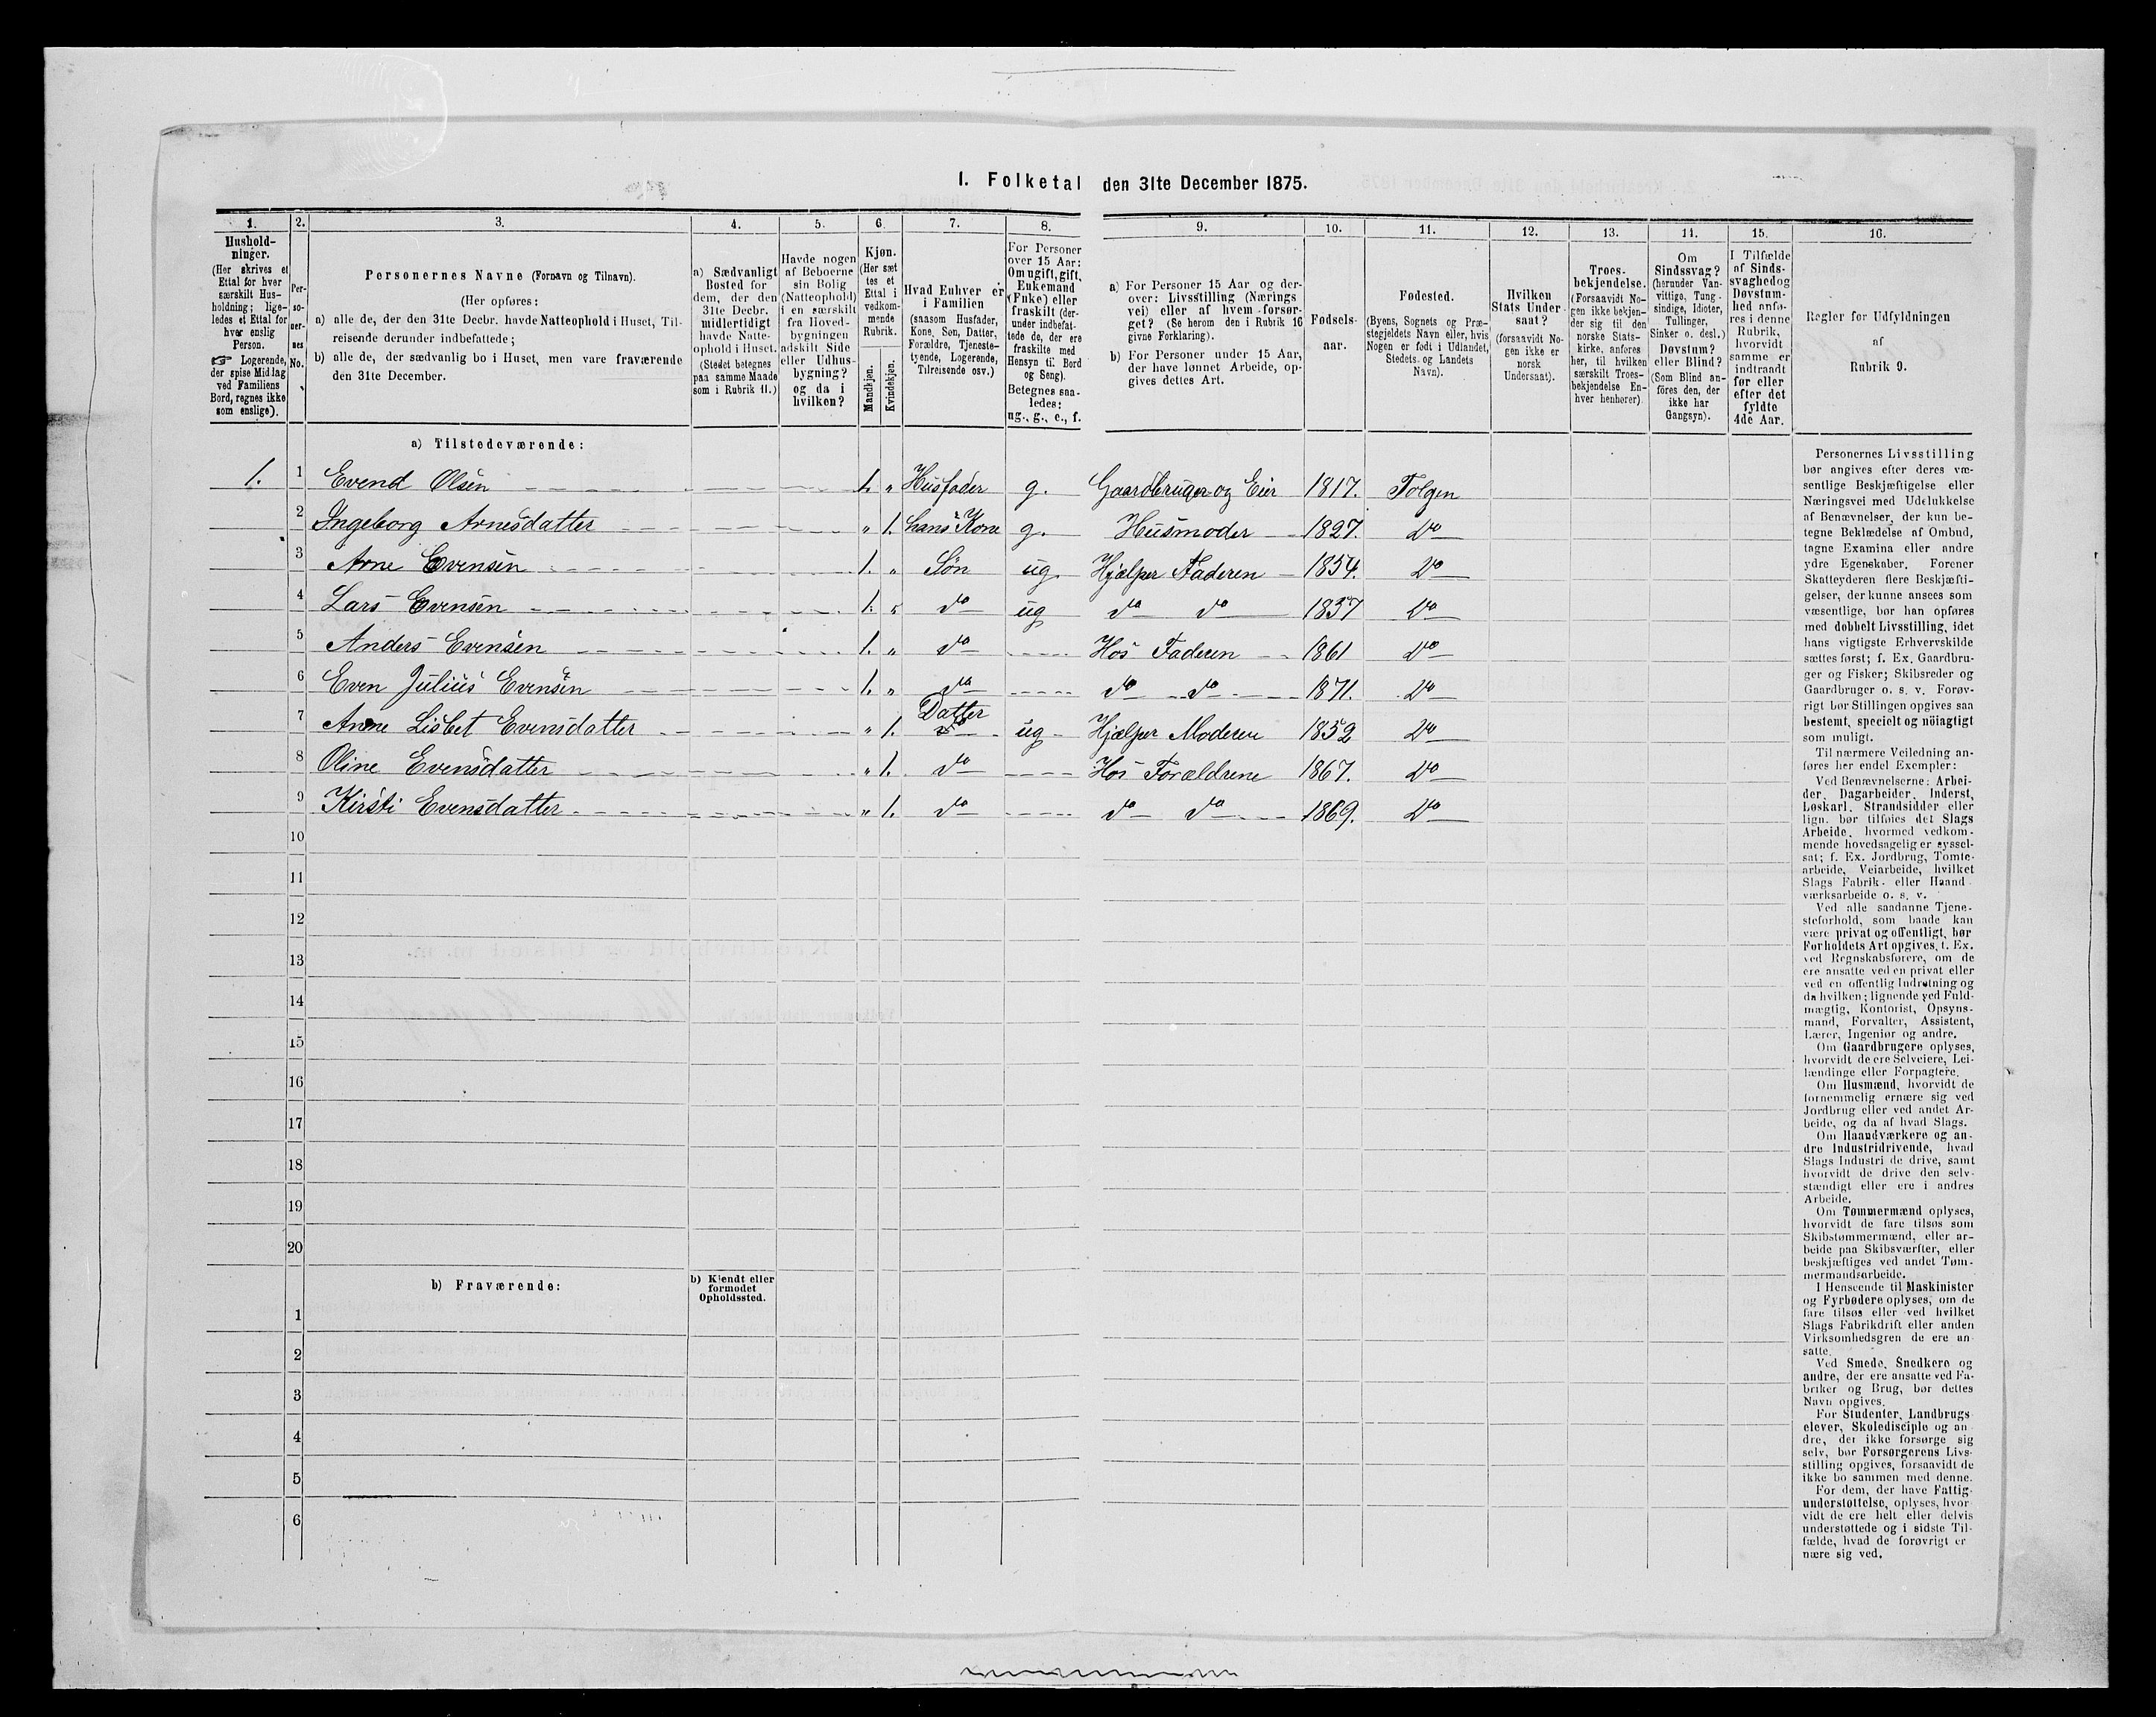 I. Folketal den 31te December 1875.
1.
Hushold-
ninger.
(Her skrives et
Ettal for hver
særskilt Hus-
holdning; lige-
ledes et Ettal for
hver enslig
Person.
☞ Logerende,
der spise Middag
ved Familiens
Bord, regnes ikke
som enslige).
2.
Per-
so-
ner-
nes
No.
3.
Personernes Navne (Fornavn og Tilnavn).
(Her opføres:
a) alle de, der den 31te Decbr. havde Natteophold i Huset, Til-
reisende derunder indbefattede;
b) alle de, der sædvanlig bo i Huset, men vare fraværende
den 31te December.
4.
a) Sædvanligt
Bosted for
dem, der den
31te Decbr.
midlertidigt
havde Natte-
ophold i Huset.
(Stedet betegnes
paa samme Maade
som i Rubrik 11.)
5.
Havde nogen
af Beboerne
sin Bolig
(Natteophold)
i en særskilt
fra Hoved-
bygningen
adskilt Side
eller Udhus-
bygning?
og da i
hvilken?
6.
Kjøn.
(Her sæt
tes et
Ettal i
vedkom-
mende
Rubrik.
Mandkjøn.
Kvindekjøn.
7.
Hvad Enhver er
i Familien
(saasom Husfader,
Kone, Søn, Datter,
Forældre, Tjeneste-
tyende, Logerende,
Tilreisende osv.)
8.
For Personer
over 15 Aar:
Om ugift, gift,
Enkemand
(Enke) eller
fraskilt (der-
under indbefat-
tede de, der ere
fraskilte med
Hensyn til Bord
og Seng).
Betegnes saa-
ledes:
ug., g., e., f.
9.
a) For Personer 15 Aar og der-
over: Livsstilling (Nærings
vei) eller af hvem forsør-
get? (Se herom den i Rubrik 16
givne Forklaring).
b) For Personer under 15 Aar,
der have lønnet Arbeide, op-
gives dettes Art.
10.
Fødsels-
aar.
11.
Fødested.
(Byens, Sognets og Præ-
stegjeldets Navn eller, hvis
Nogen er født i Udlandet,
Stedets og Landets
Navn).
12.
Hvilken
Stats Under
saat?
(forsaavidt No-
gen ikke er
norsk
Undersaat).
13.
Troes-
bekjendelse.
(Forsaavidt No-
gen ikke bekjen-
der sig til den
norske Stats-
kirke, anføres
her, til hvilken
særskilt Troes-
bekjendelse En-
hver henhører).
14.
Om
Sindssvag?
(herunder Van-
vittige, Tung-
sindige, Idioter,
Tullinger,
Sinker o. desl.)
Døvstum?
eller Blind?
(Som Blind an-
føres den, der
ikke har
Gangsyn).
15.
I Tilfælde
af Sinds-
svaghed og
Døvstum-
hed anfø-
res i denne
Rubrik,
hvorvidt
samme er
indtraadt
før eller
efter det
fyldte
4de Aar.
16.
Regler for Udfyldningen
af
Rubrik 9.
a) Tilstedeværende:
1. 1 Evend Olsen 1. " Husfader g. Gaardbruger og Eier 1817. Tolgen
2 Ingeborg Arnesdatter " 1. hans Kone g. Husmoder 1827. Do
3 Arne Evensen 1. " Søn ug. Hjælper Faderen 1854. Do
4 Lars Evensen 1. " do ug do do 1857 Do
5 Anders Evensen 1. " do Hos Faderen 1861 Do
6 Even Julius Evensen 1. " do do do 1871. Do
7 Anne Lisbet Evensdatter " 1. Datter ug Hjælper Moderen 1852 Do
8 Oline Evensdatter " 1. do Hos Forældrene 1867. Do
9 Kirsti Evensdatter " 1. do do do 1869. Do
10
11
12
13
14
15
16
17
18
19
20
b) Fraværende:
b) Kjendt eller
formodet
Opholdssted.
1
2
3
4
5
6
Personernes Livsstilling
bør angives efter deres væ-
sentlige Beskjæftigelse eller
Næringsvei med Udelukkelse
af Benævnelser, der kun be-
tegne Beklædelse af Ombud,
tagne Examina eller andre
ydre Egenskaber. Forener
Skatteyderen flere Beskjæfti-
gelser, der kunne ansees som
væsentlige, bør han opføres
med dobbelt Livsstilling, idet
hans vigtigste Erhvervskilde
sættes først; f. Ex. Gaardbru-
ger og Fisker; Skibsreder og
Gaardbruger o. s. v. Forøv-
rigt bør Stillingen opgives saa
bestemt, specielt og nöiagtigt
som muligt.
Til nærmere Veiledning an-
føres her endel Exempler:
Ved Benævnelserne: Arbei-
der, Dagarbeider, Inderst,
Løskarl, Strandsidder eller
lign. bør tilføies det Slags
Arbeide, hvormed vedkom-
mende hovedsagelig er syssel-
sat; f. Ex. Jordbrug, Tomte-
arbeide, Veiarbeide, hvilket
Slags Fabrik- eller Haand-
værksarbeide o. s. v.
Ved alle saadanne Tjene-
steforhold, som baade kan
være privat og offentligt, bør
Forholdets Art opgives, f. Ex.
ved Regnskabsførere, om de
ere ansatte ved en privat eller
ved en offentlig Indretning og
da hvilken; lignende ved Fuld-
mægtig, Kontorist, Opsyns-
mand, Forvalter, Assistent,
Lærer, Ingeniør og andre.
Om Gaardbrugere oplyses,
hvorvidt de ere Selveiere, Lei-
lændinge eller Forpagtere.
Om Husmænd, hvorvidt de
fornemmelig ernære sig ved
Jordbrug eller ved andet Ar-
beide, og da af hvad Slags.
Om Haandværkere og an-
dre Industridrivende, hvad
Slags Industri de drive, samt
hvorvidt de drive den selv-
stændigt eller ere i andres
Arbeide.
Om Tømmermænd oplyses,
hvorvidt de fare tilsøs som
Skibstømmermænd, eller ar-
beide paa Skibsværfter, eller
beskjæftiges ved andet Tøm-
mermandsarbeide.
I Henseende til Maskinister
og Fyrbødere oplyses, om de
fare tilsøs eller ved hvilket
Slags Fabrikdrift eller anden
Virksomhedsgren de ere an-
satte.
Ved Smede, Snedkere og
andre, der ere ansatte ved Fa-
briker og Brug, bør dettes
Navn opgives.
For Studenter, Landbrugs-
elever, Skoledisciple og an-
dre, der ikke forsørge sig
selv, bør Forsørgerens Livs-
stilling opgives, forsaavidt de
ikke bo sammen med denne.
For dem, der have Fattig-
understøttelse, oplyses, hvor-
vidt de ere helt eller delvis
understøttede og i sidste Til-
fælde, hvad de forøvrigt er
nære sig ved.